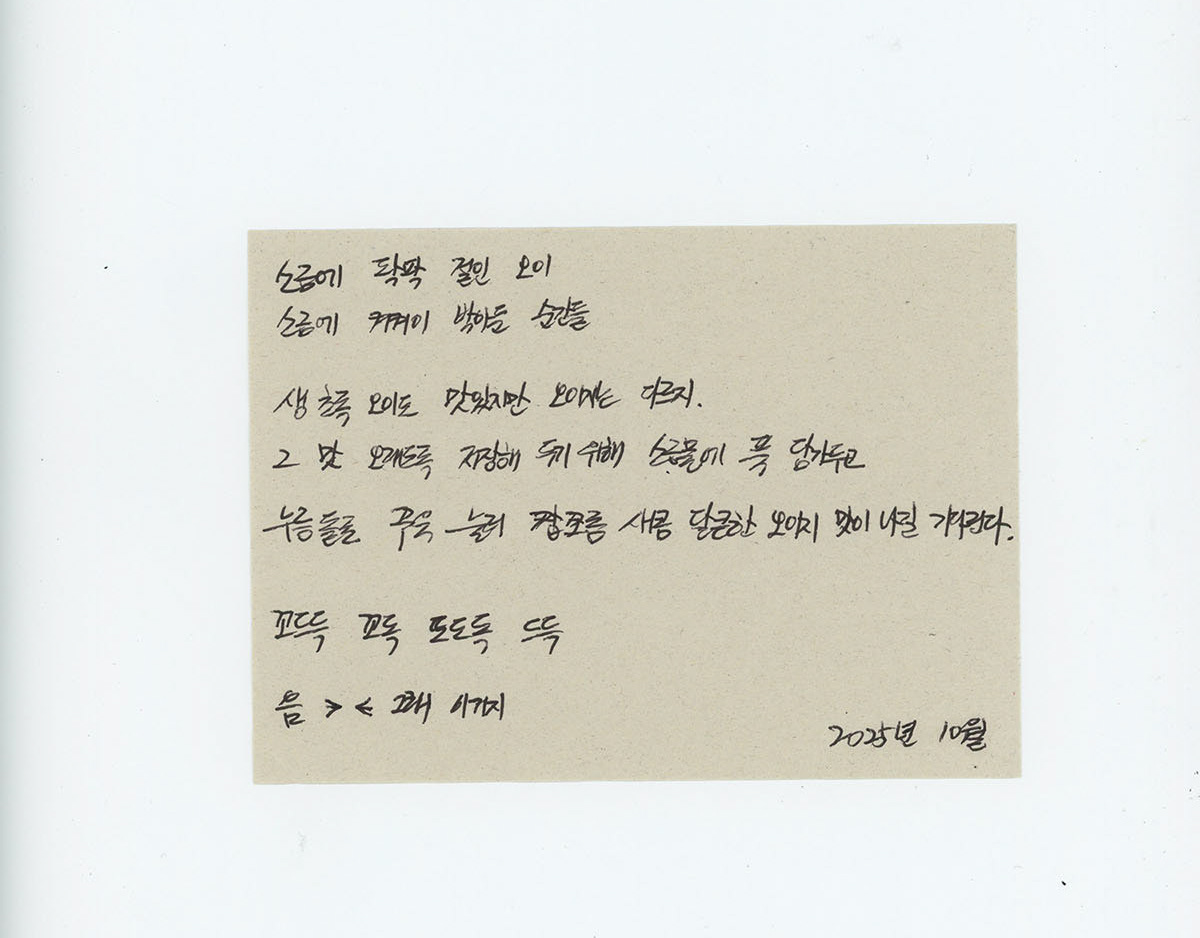 소금에 팍팍 절인 오이
소금에 켜켜이 박아둔 순간들
생 초록 오이도 맛있지만 오이지는 다르지.
그 맛 오래도록 저장해 두기 위해 소금물에 푹 담가두고
누름돌로 꾸욱 눌러 짭쪼름 새콤 달큰한 오이지 맛이 나길 기다린다.
꼬드득 꼬독 또도독 드득
음 > < 그래 이거지
2025년 10월